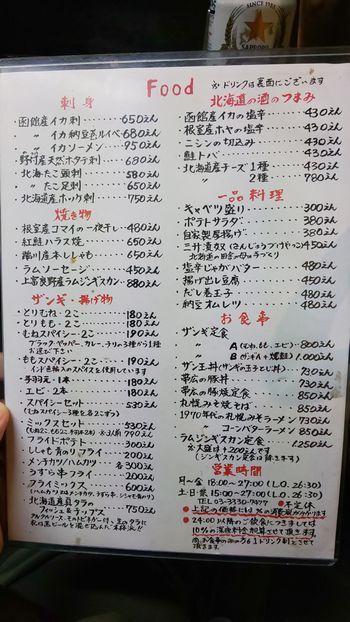 SINCE 1984
SAPPORO
Food
※ドリンクは裏面にございます
刺身
・函館産イカ刺 650えん
・〃 イカ納豆巻ルイベ 680えん
・〃 イカソーメン 950えん
・野付産天然ホタテ刺 680えん
・北海たこ頭刺 580えん
・〃 たこ足刺 650えん
・北海道産ホッケ刺 750えん
焼き物
・根室産コマイの一夜干し 480えん
・紅鮭ハラス焼 650えん
・鵡川産本ししゃも 650えん
・ラムソーセージ 450えん
・上富良野産ラムジンギスカン 880えん
ザンギ・揚げ物
・とりむね・2こ 180えん
・とりもも・2こ 180えん
・むねスパイシー・2こ 190えん
ブラックペッパー、カレー、チリの3種から1種
お選び下さい
・ももスパイシー・2こ 190えん
インド色粉入のスパイスを使用しています
・手羽元・1本 180えん
・エビ・2本 180えん
・スパイシーセット 530えん
(むねスパイシー3種を各2こずつ)
・ミックスセット 530えん
・フライドポテト 300えん
・ししゃも有のリフライ 200えん
・メンチカツ/ハムカツ 各200えん
・うずら串フライ 200えん
・フライミックス 600えん
・北海道産真タラの
フィッシュ&チップス 750えん
北海道の酒のつまみ
・函館産イカの塩辛 430えん
・根室産ホヤの塩辛 430えん
・ニシンの切込み 430えん
・鮭トバ 430えん
・北海道産チーズ 1種 430えん
・〃 2種 780えん
一品料理
・キャベツ盛り 300えん
・ポテトサラダ 380えん
・自家製厚揚げ 380えん
・三升漬奴(さんじょうづけやっこ) 450えん
・塩辛じゃがバター 480えん
・揚げ出し豆腐 450えん
・だし巻玉子 480えん
・納豆オムレツ 480えん
お食事
・ザンギ定食
・〃 A(むね、もも、エビ) 800えん
・〃 B(ザンギA+螺鯤) 1,000えん
・ザン玉丼(ザンギの玉子とじ丼) 730えん
・帯広の豚丼 730えん
・帯広の豚焼定食 830えん
・札幌みそ焼そば 830えん
・1970年代の札幌みそラーメン 730えん
・〃 コーンバターラーメン 850えん
・ラムジンギスカン定食 1,250えん
※大盛は+200えんです
(ジンギスカン定食は除きます)
営業時間
月〜金 18:00〜27:00(L.O. 26:30)
土・日・祭 15:00〜27:00(L.O. 26:30)
●不定休
●24:00以降のご飲食につきましては
10%の深夜料金加算させて頂きます
頂きます。